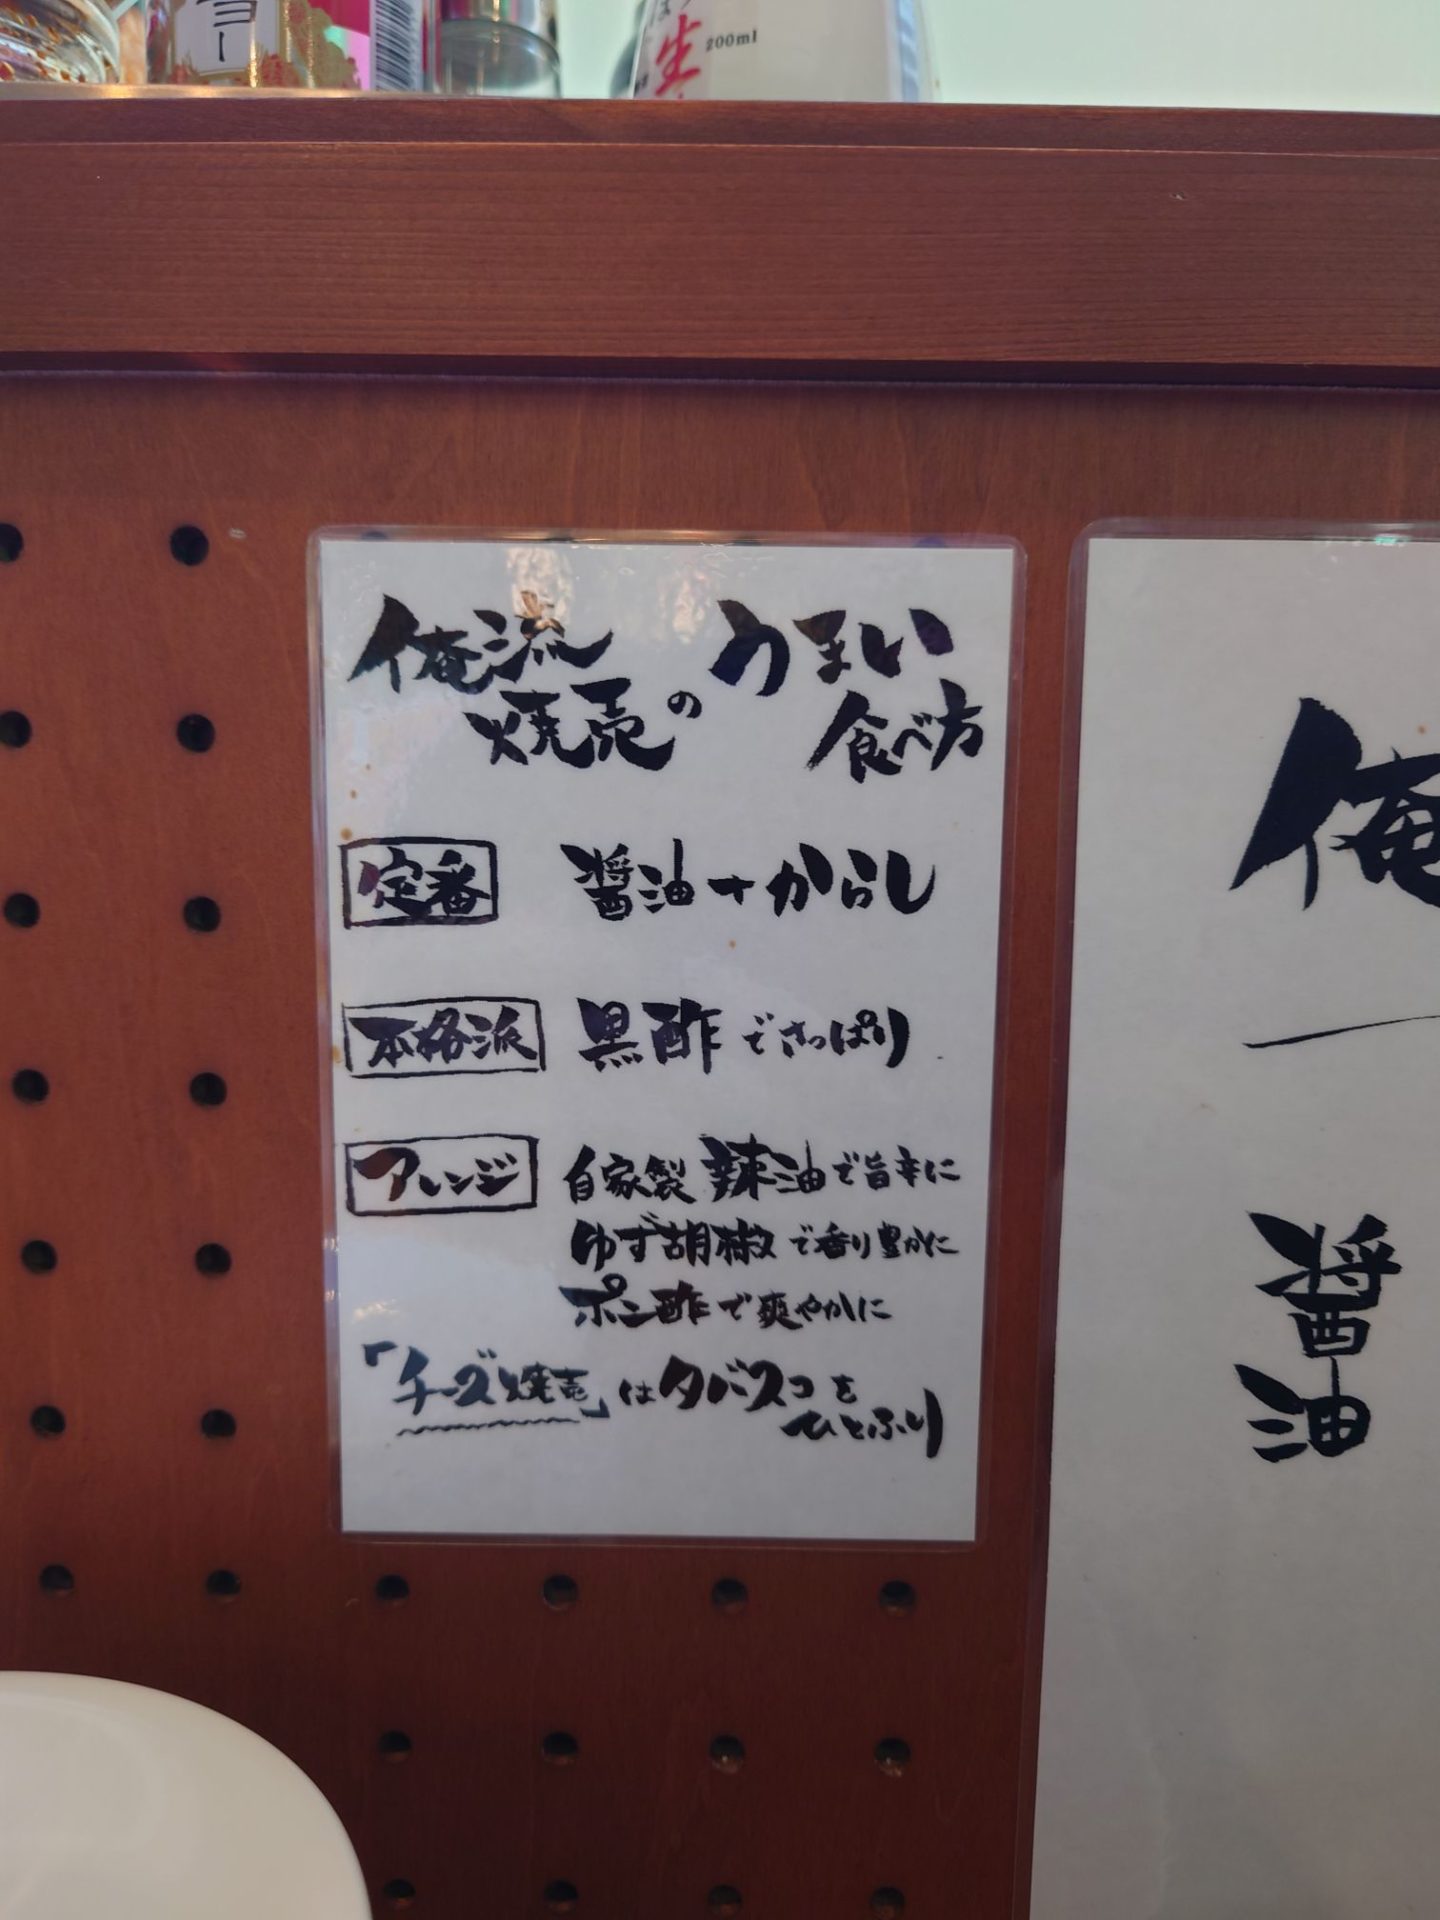 ョー
生
200ml
俺流
焼売の
うまい
食べ方
定番 醤油+からし
本格派 黒酢でさっぱり
アレンジ 自家製辣油で旨辛に
ゆず胡椒で香り豊かに
ポン酢で爽やかに
「チーズ焼売」はタバスコを
ひとふり
俺
醤油